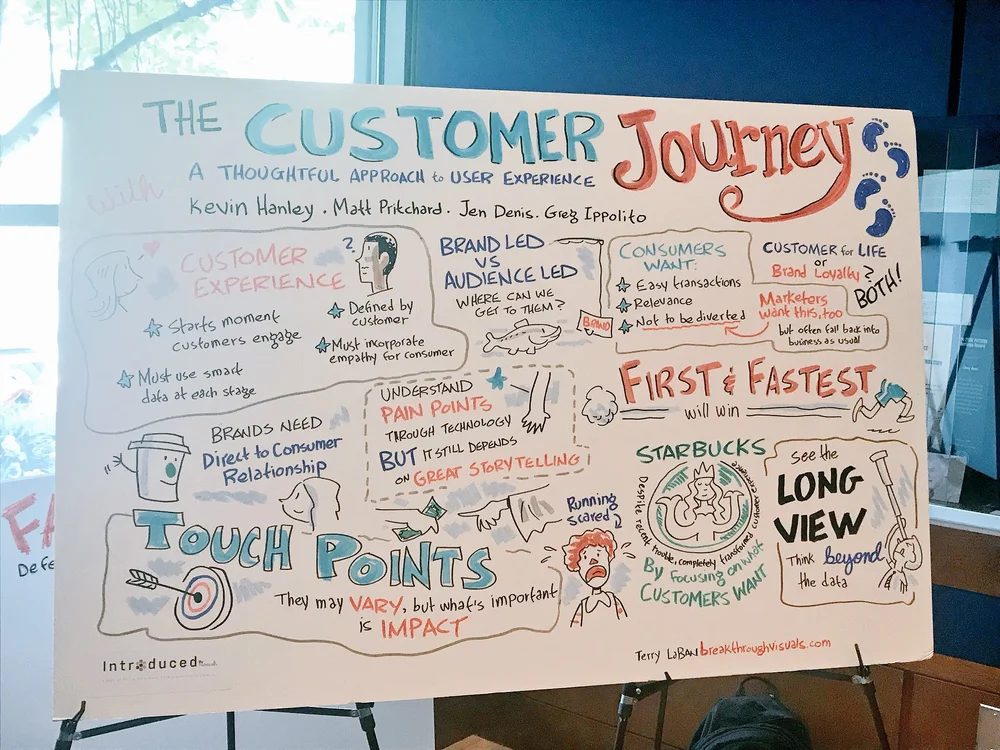 THE CUSTOMER Journey
A THOUGHTFUL APPROACH to USER EXPERIENCE
with
Kevin Hanley . Matt Pritchard . Jen Denis . Greg Ippolito
CUSTOMER
EXPERIENCE
?
Starts moment
customers engage
Must use smart
data at each stage
Defined by
customer
Must incorporate
empathy for consumer
BRAND LED
VS
AUDIENCE LED
WHERE CAN WE
GET TO THEM?
BRAND
CONSUMERS
WANT:
Easy transactions
Relevance
Not to be diverted
CUSTOMER for LIFE
or
Brand Loyalty?
BOTH!
Marketers
want this, too
but often fall back into
business as usual
BRANDS NEED
Direct to Consumer
Relationship
UNDERSTAND
PAIN POINTS
THROUGH TECHNOLOGY
BUT IT STILL DEPENDS
ON GREAT STORYTELLING
FIRST & FASTEST
will win
TOUCH POINTS
They may VARY, but what's important
is IMPACT
Running
scared
STARBUCKS
Despite recent trouble, completely transformed customer experience
By Focusing on what
CUSTOMERS WANT
See the
LONG
VIEW
Think beyond
the data
Introduced
Terry LaBAN breakthroughvisuals.com
FA
Defe